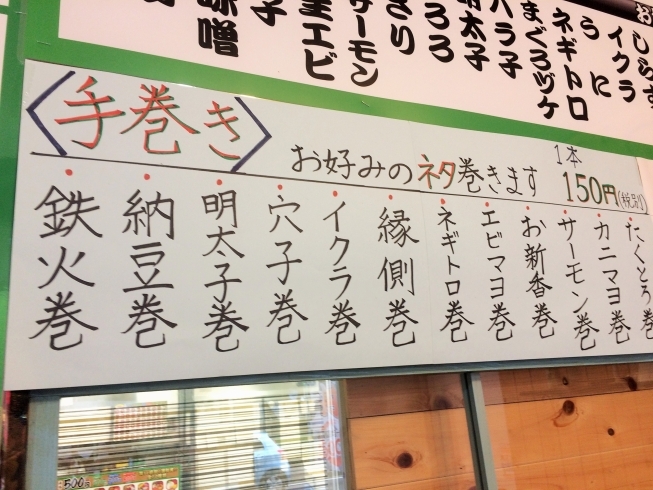 しらす
イクラ
うに
ネギトロ
まぐろヅケ
ハラ子
明太子
とろろ
サーモン
エビ
味噌
〈手巻き〉
お好みのネタ巻きます
1本
150円(税別)
たくとろ巻
カニマヨ巻
サーモン巻
お新香巻
エビマヨ巻
ネギトロ巻
縁側巻
イクラ巻
穴子巻
明太子巻
納豆巻
鉄火巻
500